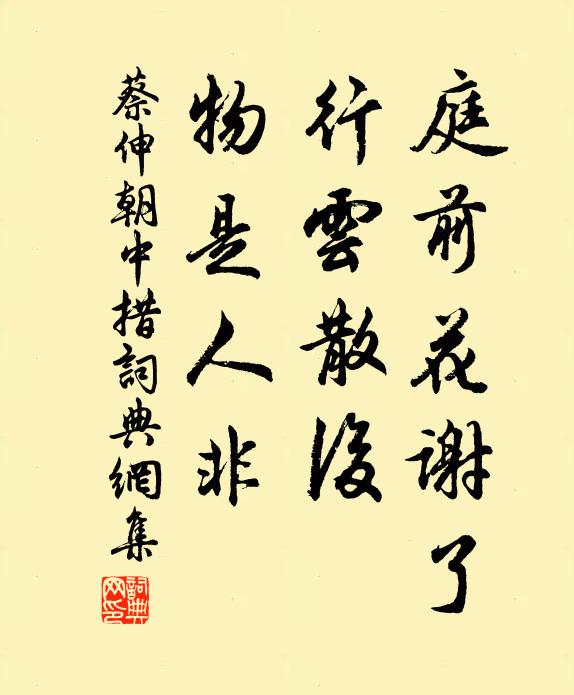 庭前花謝了
行雲散後
物是人非
蔡伸朝中措詞典網集
詞典網印